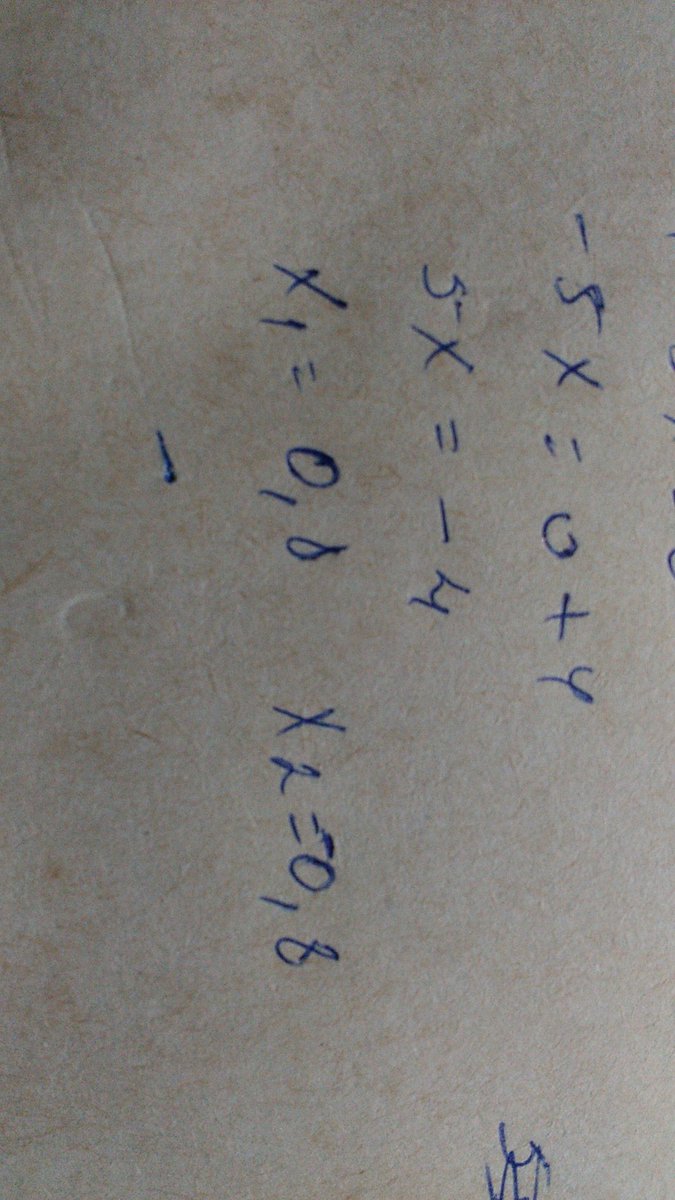 -5x = 0 + 4
5x = -4
x₁ = 0,8 x₂ = 0,8
-